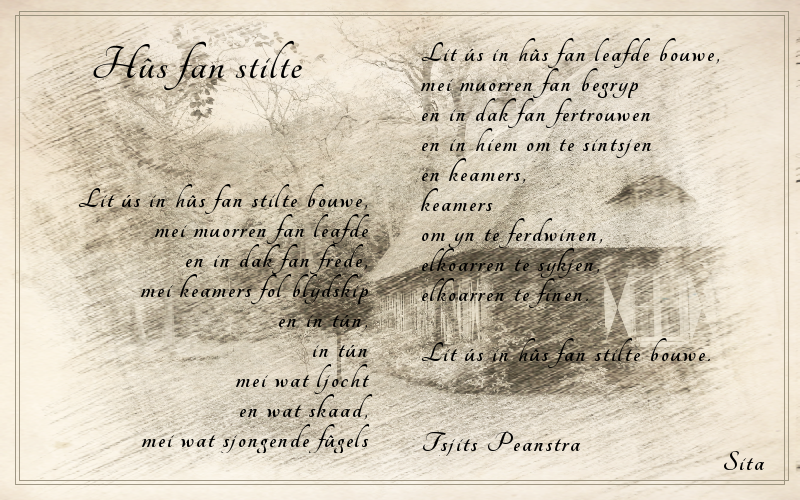 Hûs fan stilte
Lit ús in hûs fan stilte bouwe,
mei muorren fan leafde
en in dak fan frede,
mei keamers fol blydskip
en in tún.
in tún
mei wat ljocht
en wat skaad,
mei wat sjongende fûgels
Lit ús in hûs fan leafde bouwe,
mei muorren fan begryp
en in dak fan fertrouwen
en in hiem om te sintsjen
en keamers,
keamers
om yn te ferdwinen,
elkoarren te sykjen,
elkoarren te finen.
Lit ús in hûs fan stilte bouwe.
Tsjits Peanstra
Sita